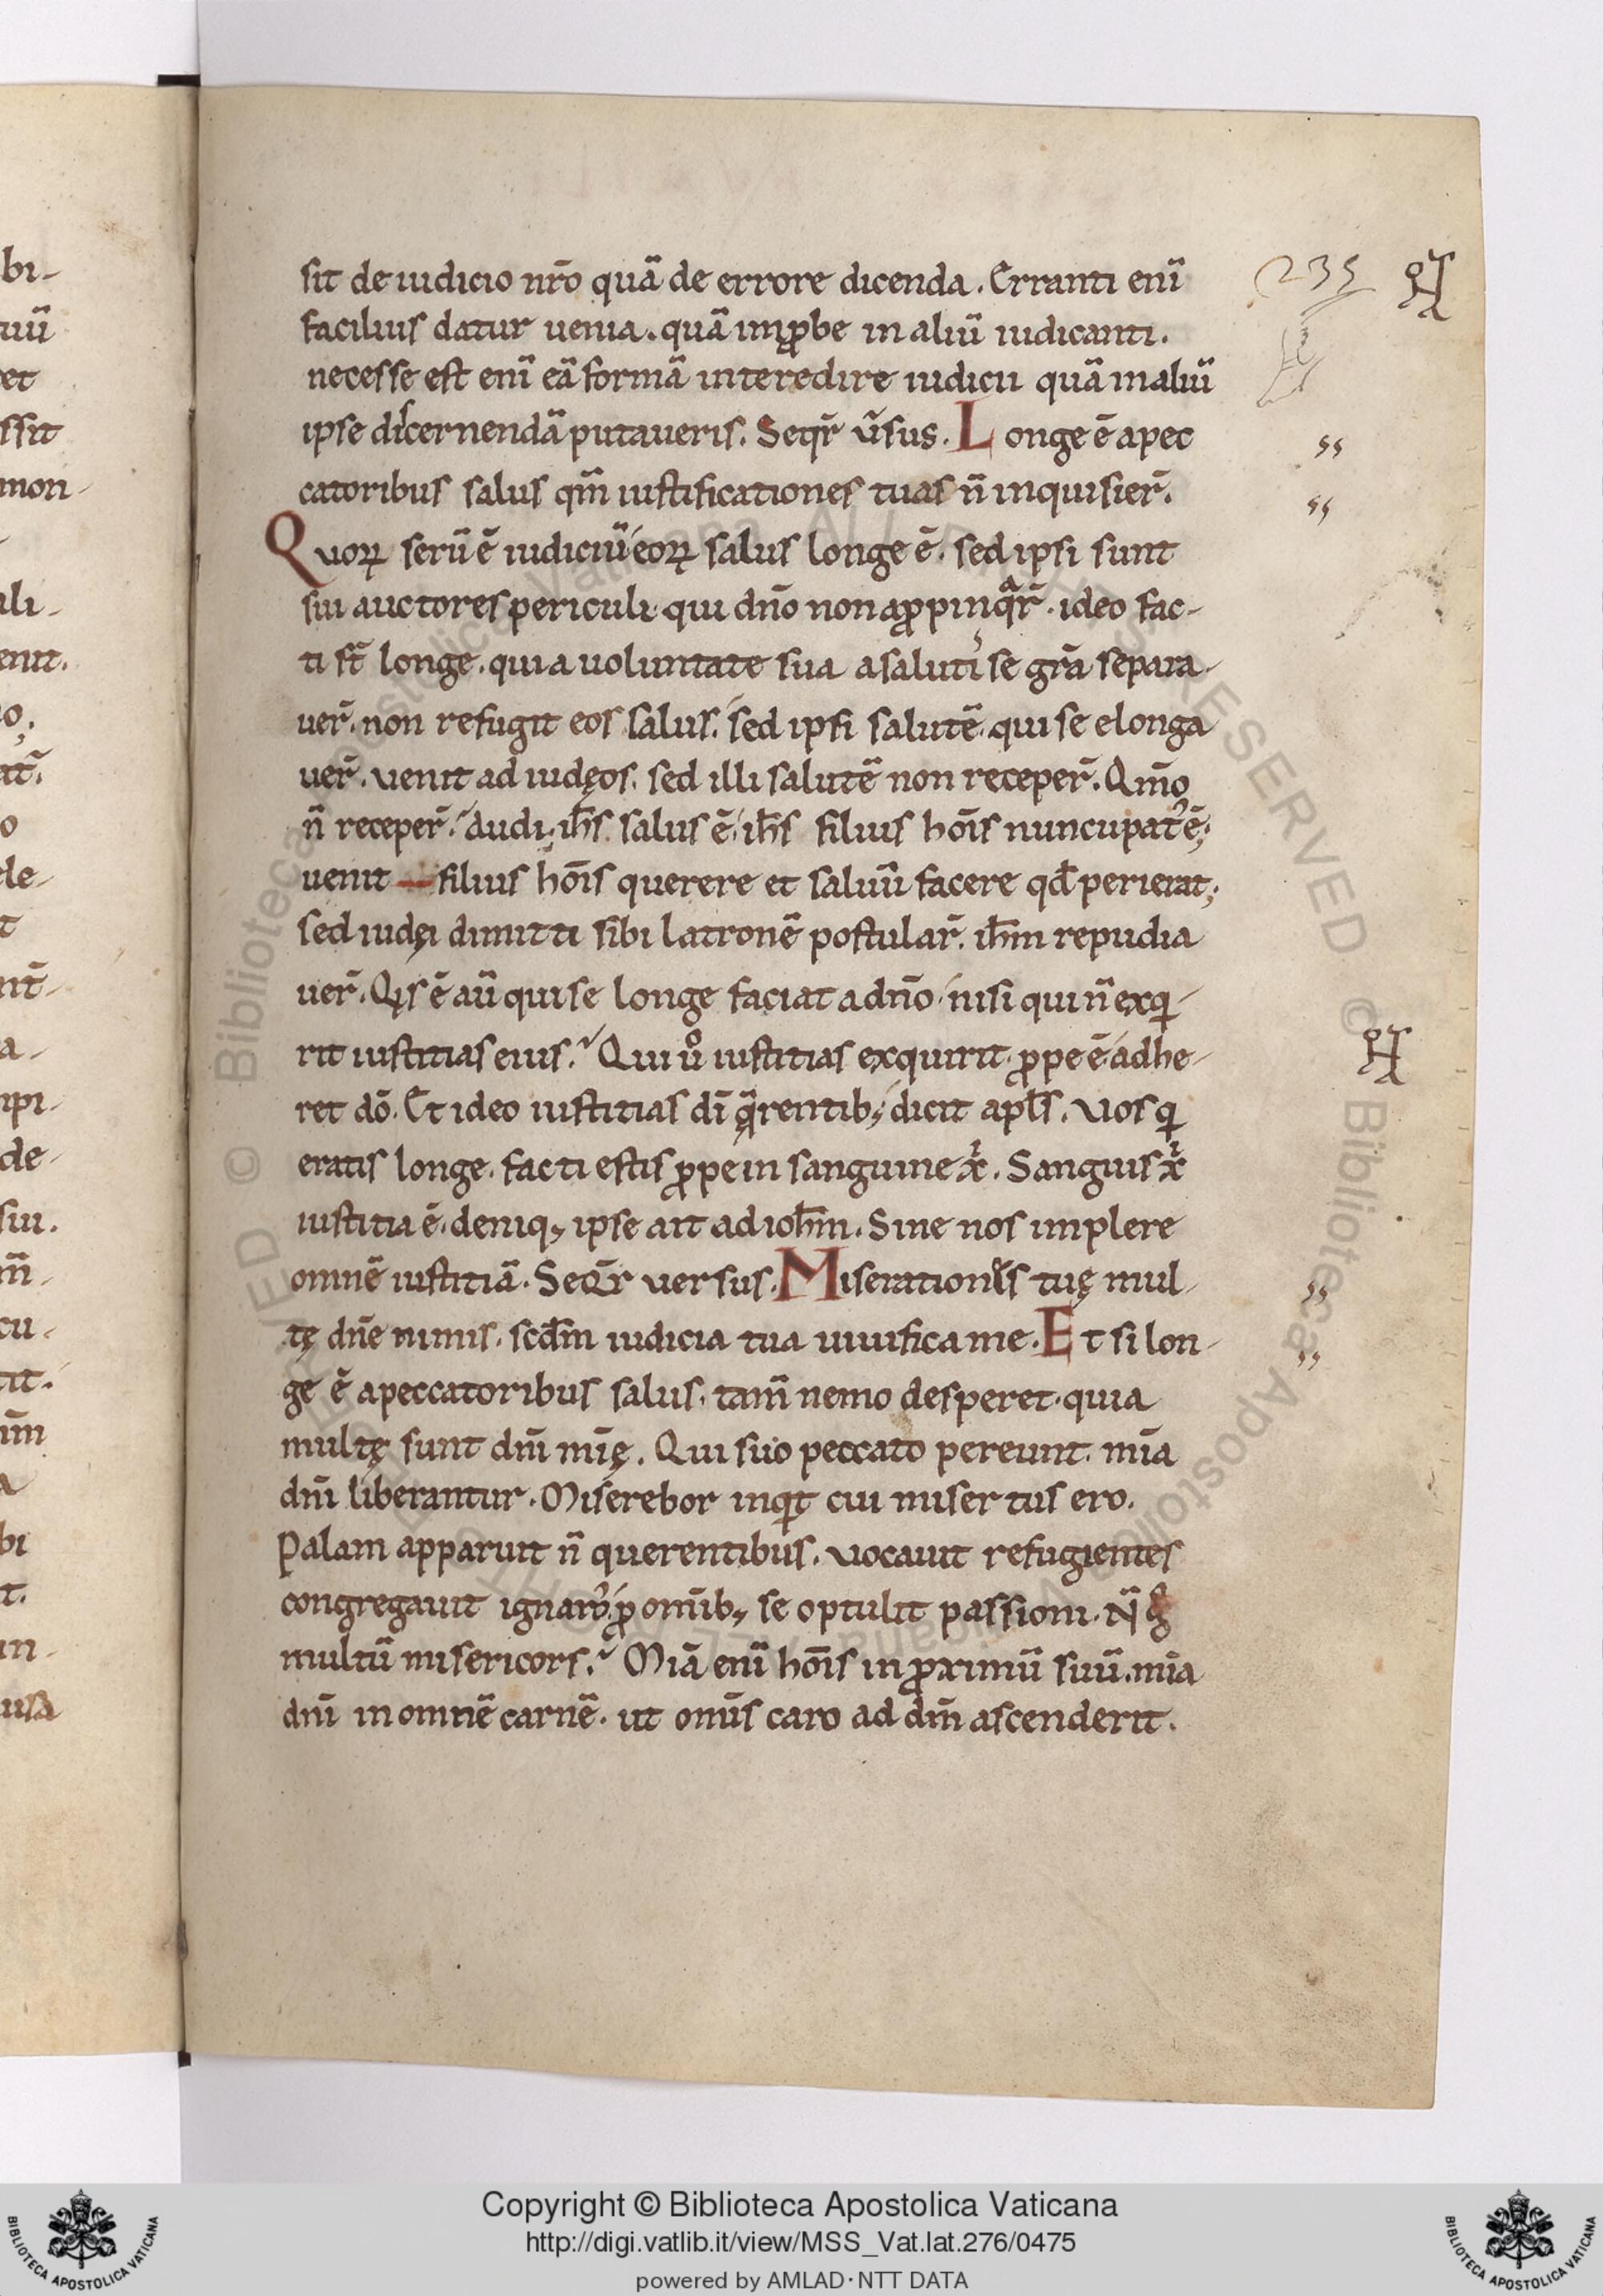 235
sit de iudicio nr̄o quā de errore dicenda. Erranti enī
facilius datur uenia. quā imꝓbe in aliū iudicanti.
necesse est enī eā formā in te redire iudicii quā in aliū
ipse discernendā putaueris. Seqr̄ ūsus. Longe ē a pec
catoribus salus qm̄ iustificationes tuas n̄ inquisier̄.
Quoꝝ serū ē iudiciū eoꝝ salus longe ē. sed ipsi sunt
sui auctores periculi qui dn̄o non aꝓpinqͣr̄. ideo fac-
ti st̄ longe. quia uoluntate sua a saluti se gr̄a separa-
uer̄. non refugit eos salus. sed ipsi salutē qui se elonga
uer̄. uenit ad iudęos. sed illi salutē non receper̄. Qm̄o
n̄ receper̄. audi. ih̄s salus ē. ih̄s filius hōis nuncupat᷒ ē;
uenit — filius hōis querere et saluū facere qd̄ perierat;
sed iudęi dimitti sibi latronē postular̄. ih̄m repudia
uer̄. Qis ē aū qui se longe faciat a dn̄o nisi qui n̄ exqi-
rit iustitias eius. Qui uͦ iustitias exquirit ꝓpe ē adhe-
ret dō. Et ideo iustitias dī q̄rentib; dicit apl̄s. Vos qi
eratis longe. facti estis ꝓpe in sanguine xͥ. Sanguis xͥ
iustitia ē. deniq; ipse ait ad ioh̄m. Sine nos implere
omnē iustitiā. Seqr̄ uersus. Miserationes tuę mul-
tę dn̄e nimis. scd̄m iudicia tua uiuifica me. Et si lon-
ge ē a peccatoribus salus. tam̄ nemo desperet. quia
multę sunt dn̄i mīę. Qui suo peccato pereunt. mīa
dn̄i liberantur. Miserebor inqt cui misertus ero.
Palam apparuit n̄ querentibus. uocauit refugientes
congregauit ignaros. ꝓ omīb; se optulit passioni.
multū misericors. Mīa enī hōis in ꝓximū suū. mīa
dn̄i in omnē carnē. ut omīs caro ad dm̄ ascenderit.
Copyright © Biblioteca Apostolica Vaticana
http://digi.vatlib.it/view/MSS_Vat.lat.276/0475
powered by AMLAD·NTT DATA